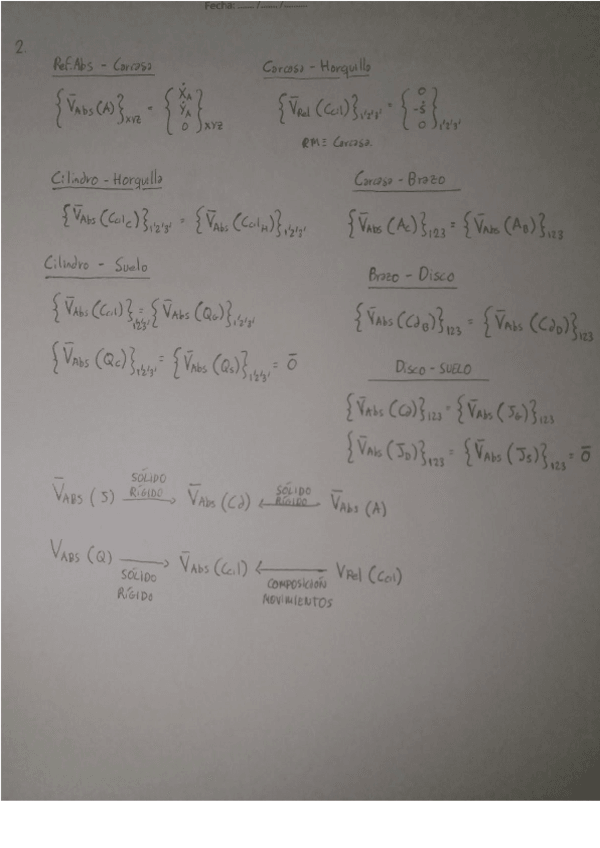 Fecha: ___ / ___ / ___
2.
Ref.Abs - Carcasa
{V̄Abs (A)}XYZ = {ẊA ẎA 0}XYZ
Carcasa - Horquilla
{V̄Rel (Ccil)}1'2'3' = {0 -ṡ 0}1'2'3'
RM≡ Carcasa.
Cilindro - Horquilla
{V̄Abs (CcilC)}1'2'3' = {V̄Abs (CcilH)}1'2'3'
Carcasa - Brazo
{V̄Abs (AC)}123 = {V̄Abs (AB)}123
Cilindro - Suelo
{V̄Abs (Ccil)}1'2'3' = {V̄Abs (QG)}1'2'3'
{V̄Abs (QC)}1'2'3' = {V̄Abs (QS)}1'2'3' = 0̄
Brazo - Disco
{V̄Abs (C∂B)}123 = {V̄Abs (C∂D)}123
Disco - SUELO
{V̄Abs (C∂)}123 = {V̄Abs (JG)}123
{V̄Abs (JD)}123 = {V̄Abs (JS)}123 = 0̄
V̄ABS (J) SÓLIDO RÍGIDO → V̄Abs (C∂) ← SÓLIDO RÍGIDO V̄Abs (A)
VABS (Q) → SÓLIDO RÍGIDO V̄Abs (Ccil) ← COMPOSICIÓN MOVIMIENTOS VRel (Ccil)